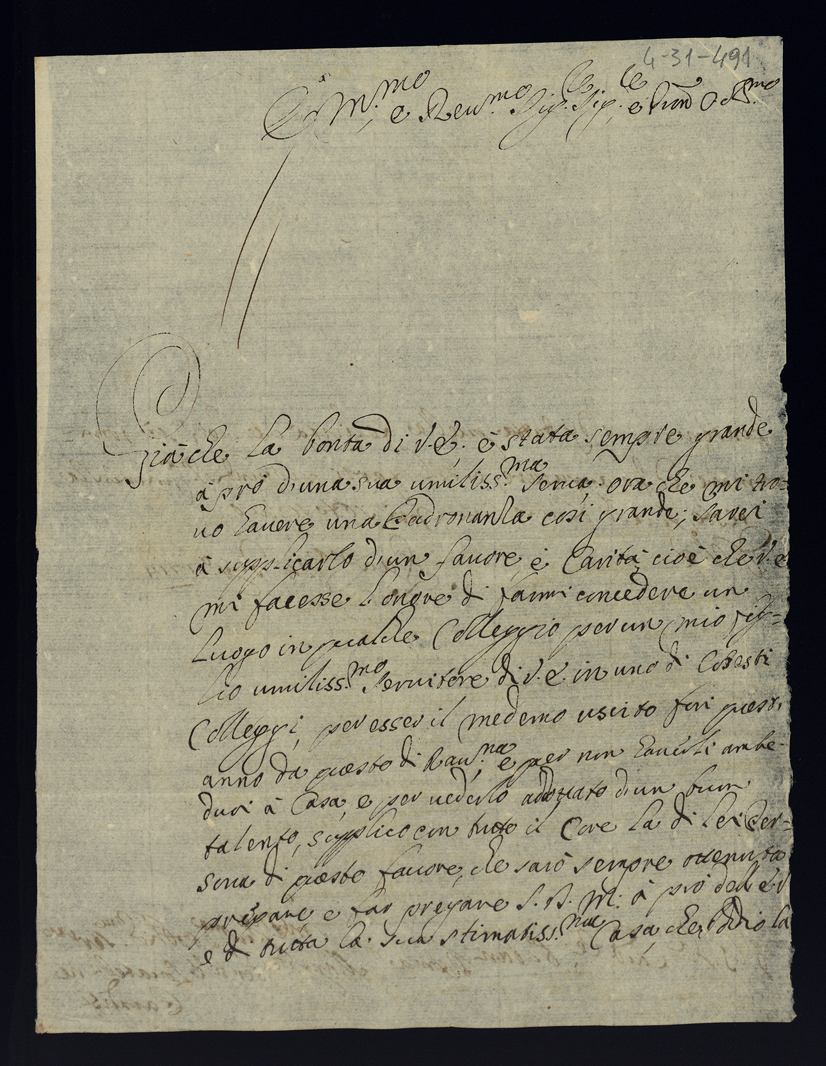 4-31-491
Em.mo e Reu.mo Sig. Sig. e Pron Col.mo
Già che la bontà di V.E. è stata sempre grande
à prò d'una sua umiliss.ma serua. Ora che mi tro-
uo hauere una Padronanza così grande, sarei
à supplicarlo d'un fauore, e Carità, cioè che V.E.
mi facesse l'onore di farmi concedere un
Luogo in qualche Colleggio per un mio fig-
lio umiliss.mo seruitore di V.E. in uno di Cotesti
Colleggi, per esser il medemo uscito fuori quest'
anno da questo di Rau.na, e per non hauerli ambe-
dui à Casa, e per uederlo addottato d'un buon
talento, supplico con tutto il Core la di lei Per-
sona di questo fauore, che sarò sempre ottenuta
pregare e far pregare S.D.M. à prò dell'E.V.
e di tutta la sua stimatiss.ma Casa, che Iddio la